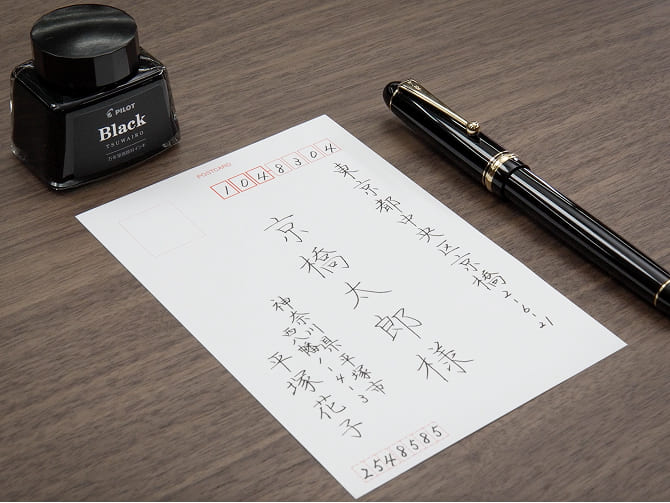 PILOT
Black
TSUWAIRO
万年筆用特別インキ
POSTCARD
1048304
東京都中央区京橋
2-6-21
京橋太郎様
神奈川県平塚市
西八幡1-4-3
平塚花子
2548585